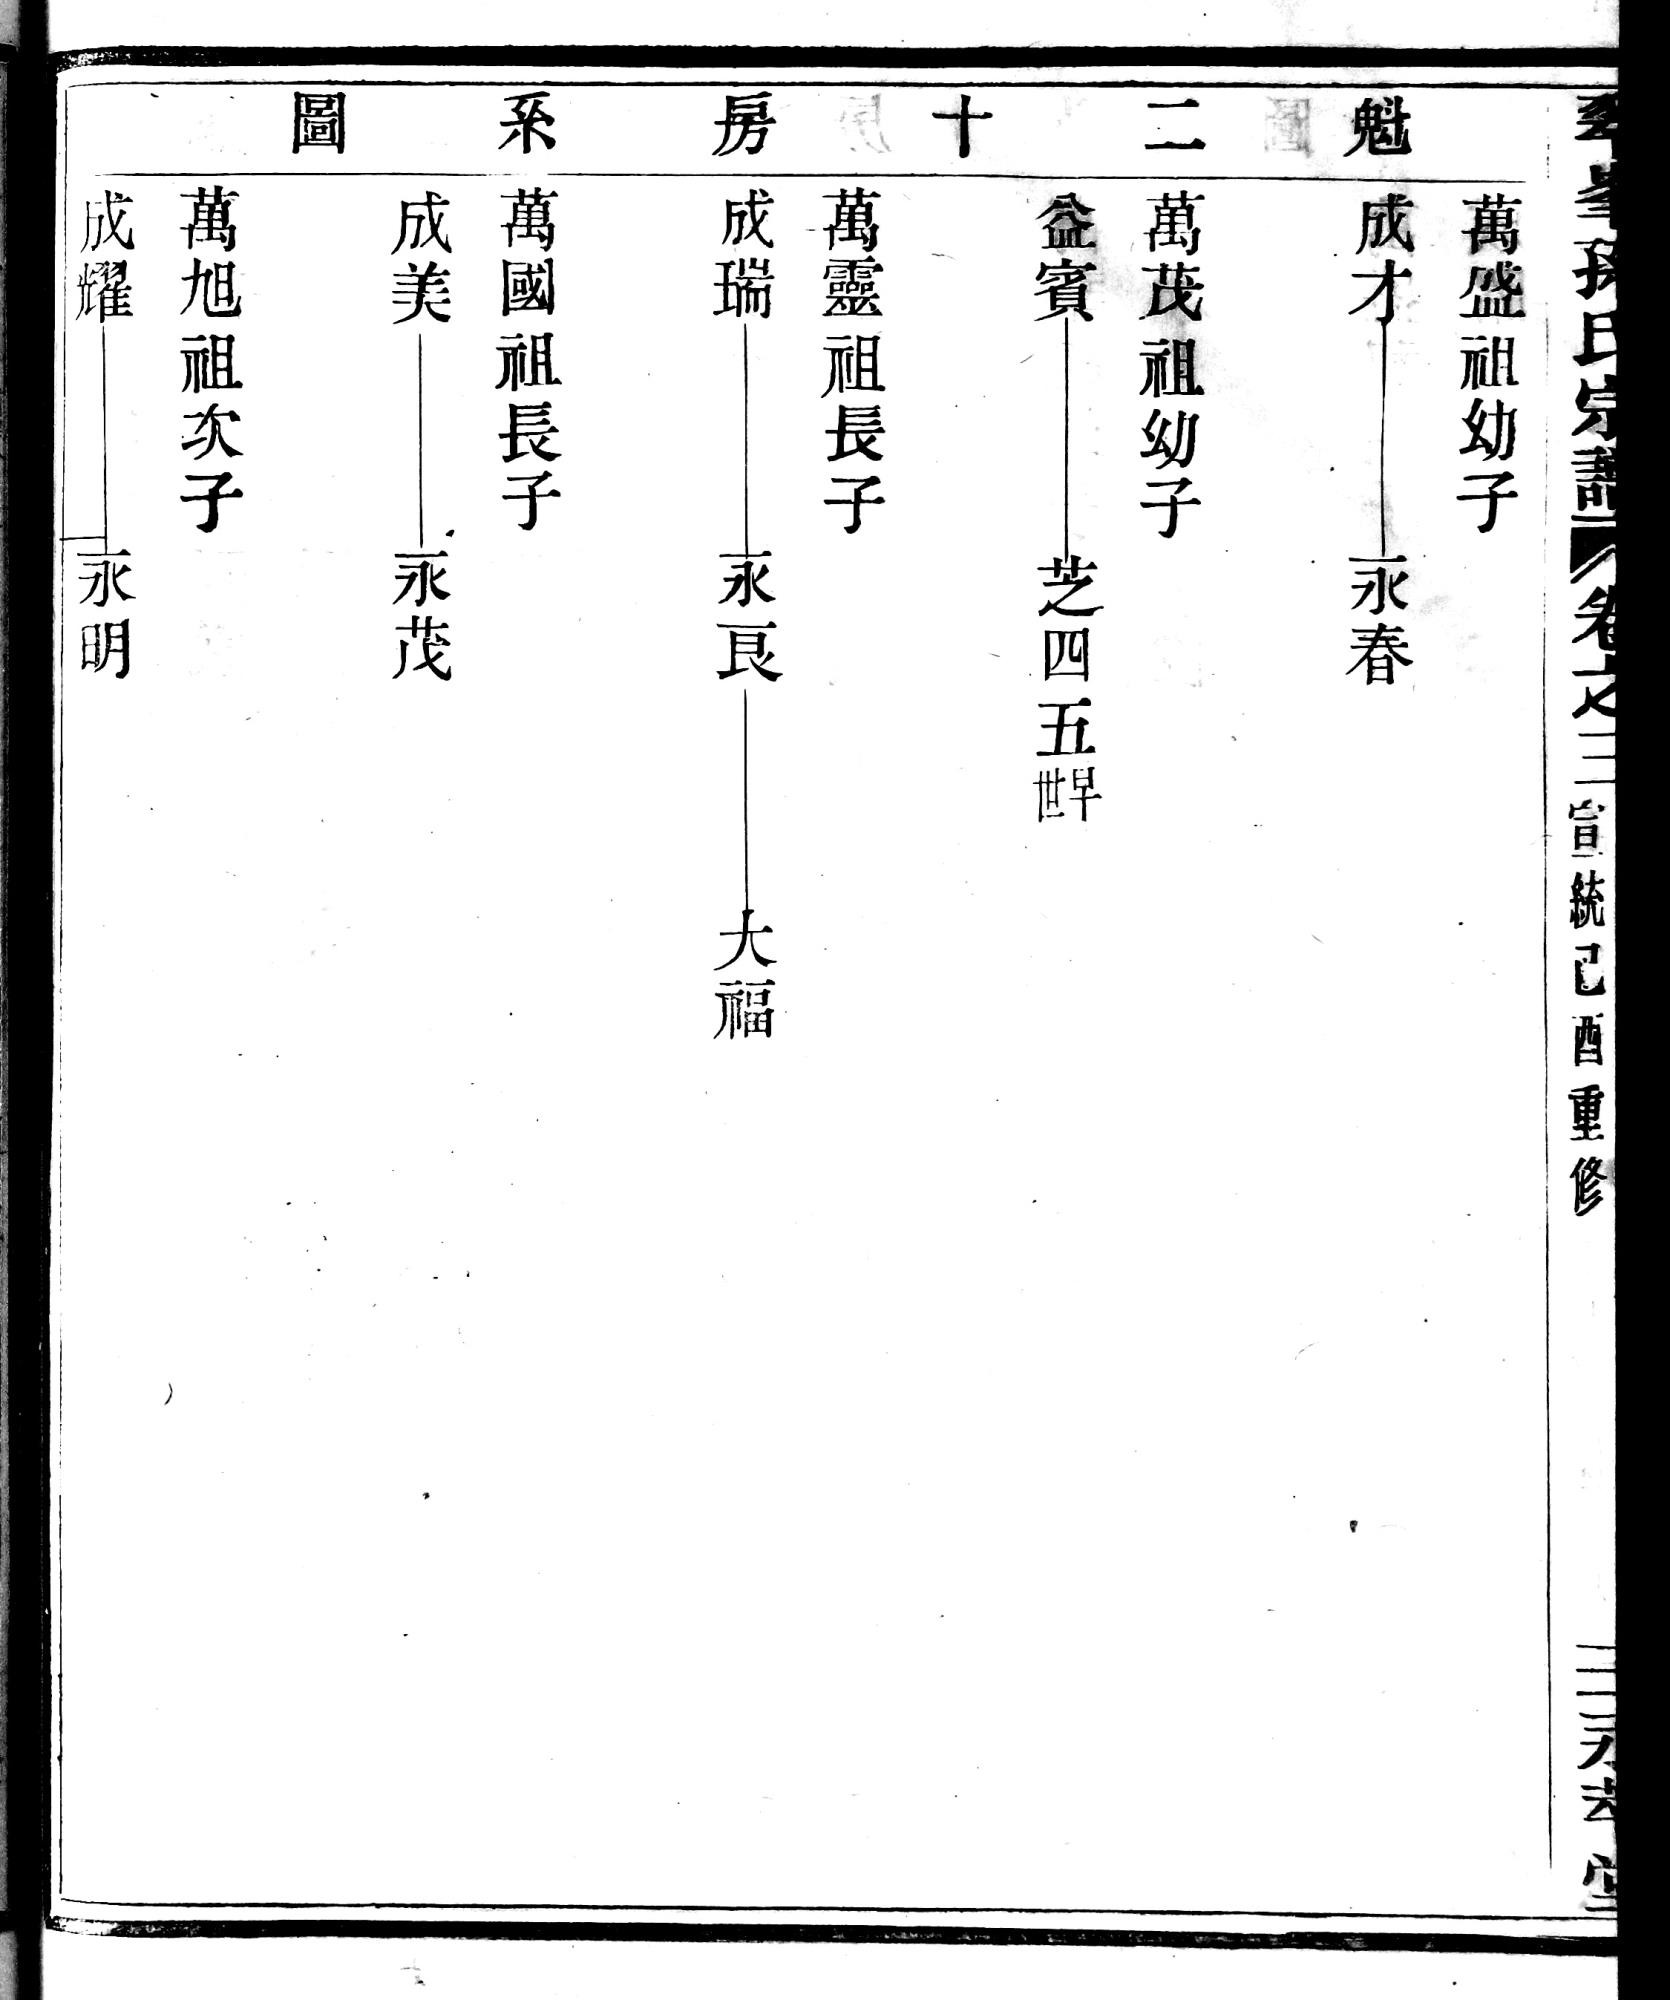 魁二十房系圖
萬盛祖幼子
成才 永春
萬茂祖幼子
益賓 芝四五早世
萬靈祖長子
成瑞 永良 大福
萬國祖長子
成美 永茂
萬旭祖次子
成耀 永明
孫氏宗譜 卷之三 宣統己酉重修
堂